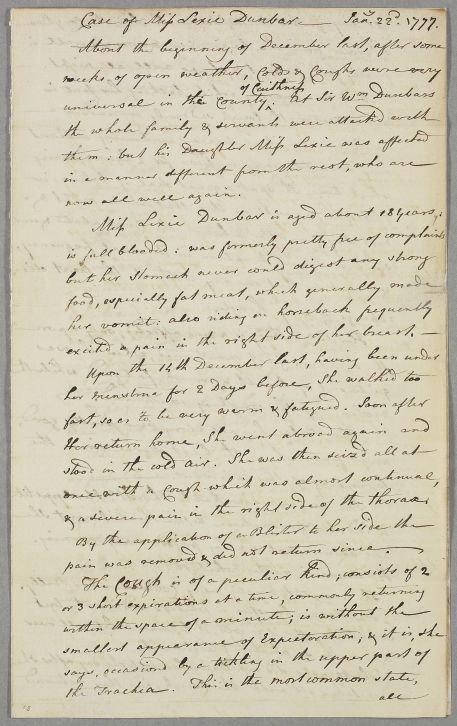 Case of Miss Lexie Dunbar. — Jany. 22d. 1777.
About the beginning of December last, after some
weeks of open weather, Colds & Coughs were very
of Caithness
universal in the County. At Sir Wm Dunbars
the whole family & servants were attacked with
them: but his Daughter Miss Lexie was affected
in a manner different from the rest, who are
now all well again.
Miss Lexie Dunbar is aged about 18 years,
is full blooded: was formerly pretty free of complaints
but her stomach never could digest any strong
food, especially fat meat, which generally made
her vomit: also riding on horseback frequently
excited a pain in the right side of her breast. —
Upon the 14th December last, having been under
her menstrua for 2 Days before, She walked too
fast, so as to be very warm & fatigued. Soon after
Her return home, She went abroad again and
stood in the cold air. She was then seiz'd all at
once with a Cough which was almost continual,
& a severe pain in the right side of the thorax.
By the application of a Blister to her side the
pain was removed & did not return since. —
The Cough is of a peculiar kind; consists of 2
or 3 short expirations at a time, commonly returning
within the space of a minute; is without the
smallest appearance of Expectoration; & it is, she
says, occasiond by a tickling in the upper part of
the Trachia. This is the most common state,
all